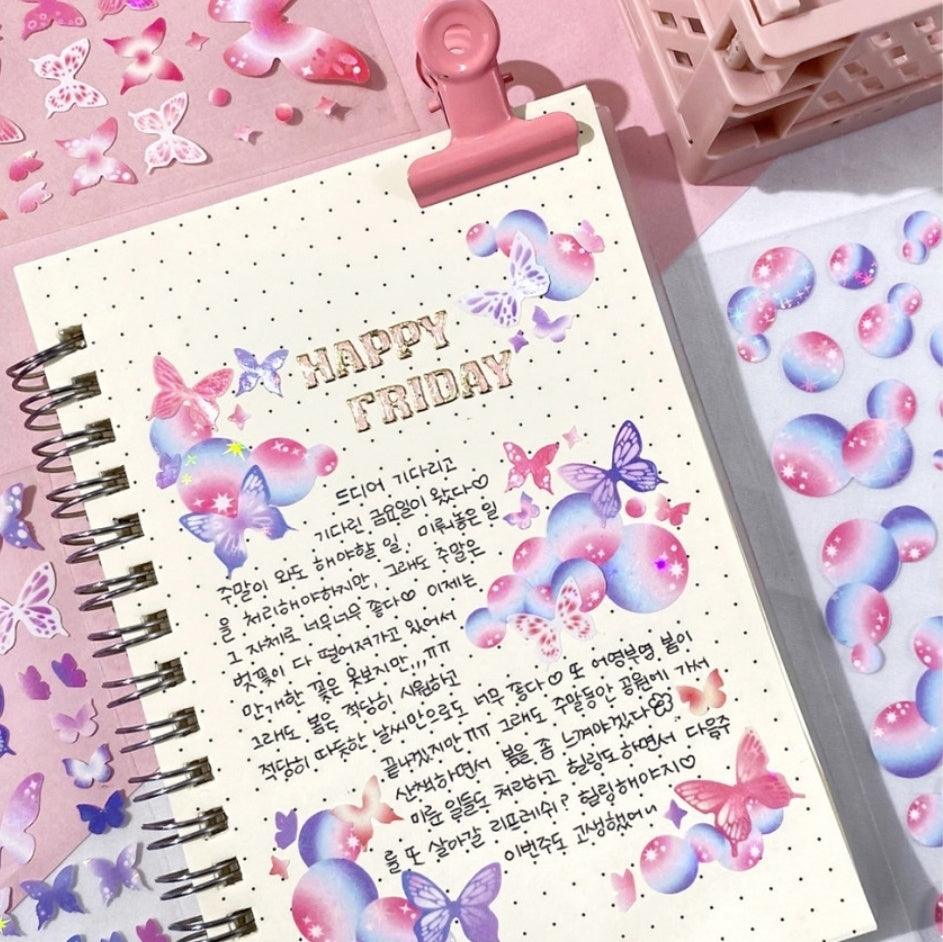 HAPPY
FRIDAY
드디어 기다리고
기다린 금요일이 왔다♡
주말이 와도 해야할 일, 미뤄놓은 일
을 처리해야하지만, 그래도 주말은
그 자체로 너무너무 좋다♡ 이제는
벚꽃이 다 떨어져가고 있어서
만개한 꽃은 못보지만,,,ㅠㅠ
그래도 봄은 적당히 시원하고
적당히 따듯한 날씨만으로도 너무 좋다♡ 또 어영부영 봄이
끝나겠지만ㅠㅠ 그래도 주말동안 공원에 가서
산책하면서 봄을 좀 느껴야겠다
미룬 일들도 처리하고 힐링도하면서 다음주
를 또 살아갈 리프레쉬? 힐링해야지♡
이번주도 고생했어~